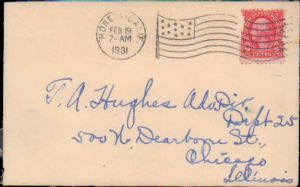 FEB 19
7-AM
1931
T. A. Hughes Adv. Div.
Dept 25
500 N. Dearborn St.,
Chicago
Illinois